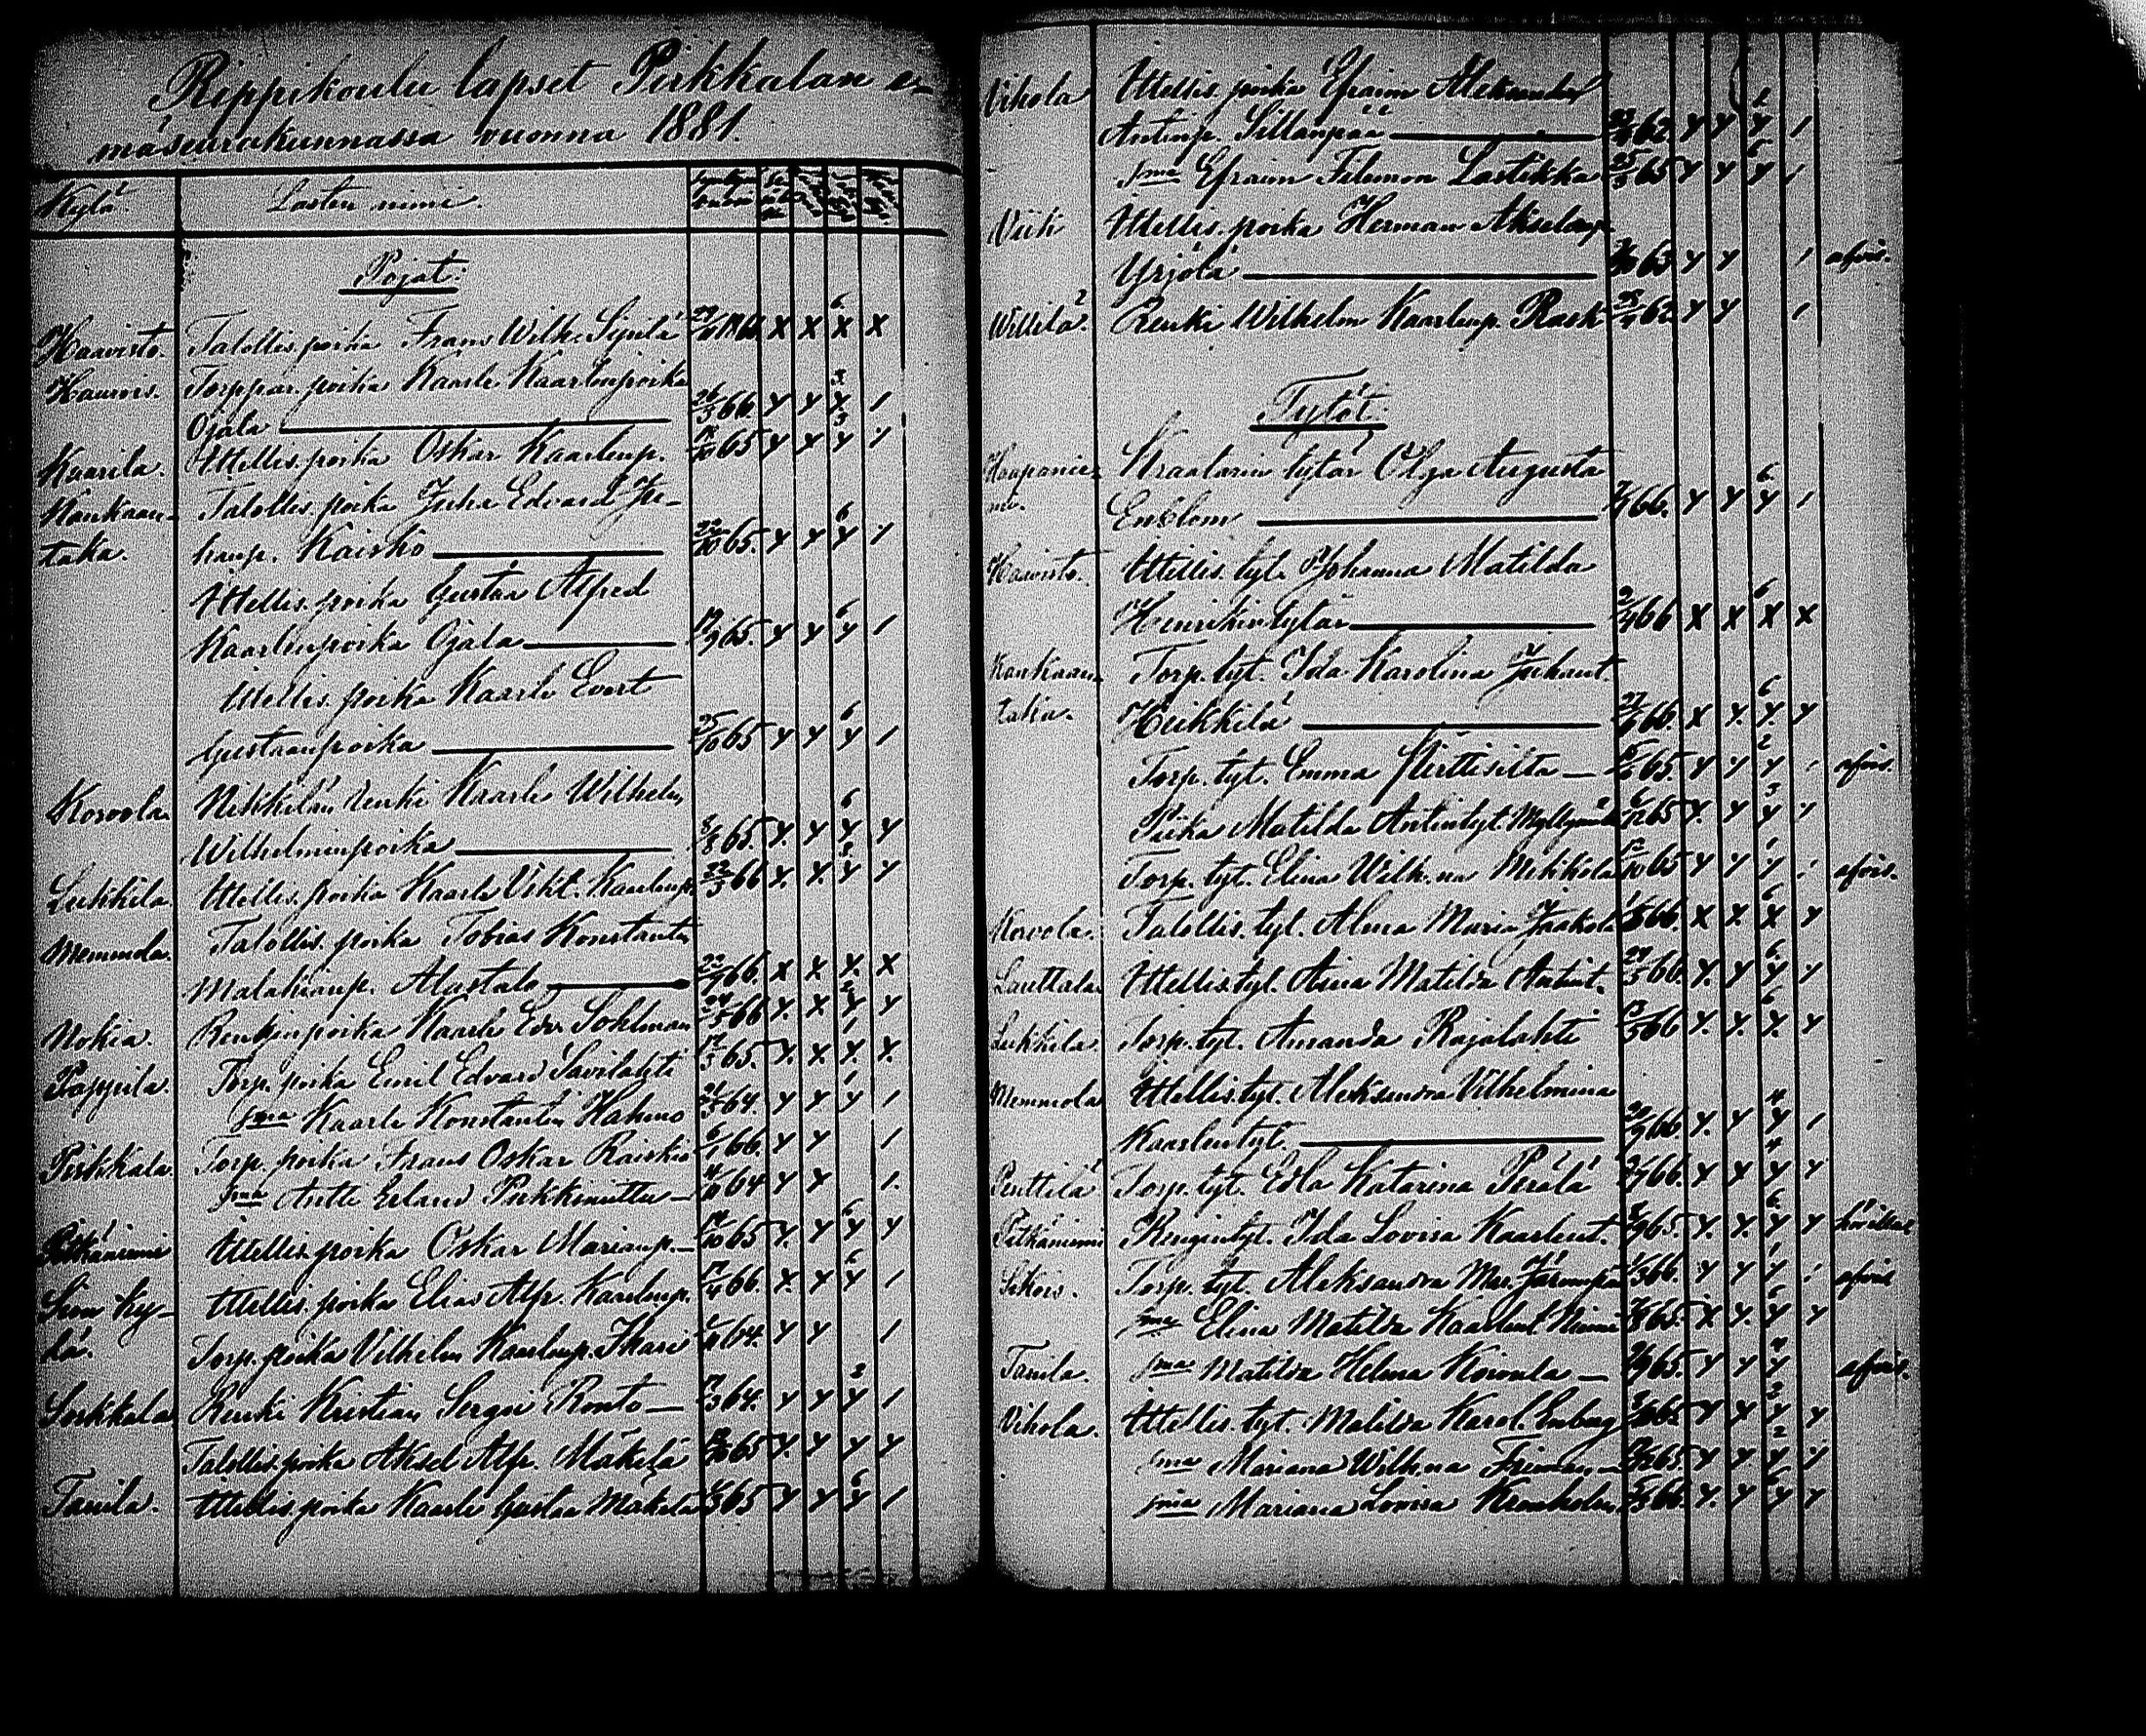 Rippikoulu lapset Pirkkalan e-
mäseurakunnassa vuonna 1881.
Kylä. Lasten nimi.
Pojat:
Haavisto. Talollis. poika Frans Wilh. Sipilä X X X X
Haurois. Torppar. poika Kaarle Kaarlenpoika
Ojala 26/3 66. y y y 1
Kaarila. Ittellis. poika Oskar Kaarlenp. 65 y y y y
Kankaan- Talollis. poika Juha Edvard Ju-
taka. hanp. Kaisko 22/10 65. y y y 1
Ittellis. poika Gustaa Alfred
Kaarlenpoika Ojala 19/9 65. y y y 1
Ittellis. poika Kaarle Evert
Gustaanpoika 25/10 65 y y y 1
Korvola. Nikkilän renki Kaarle Wilhelm
Wilhelminpoika 8/8 65. y y y y
Lukkila. Ittellis. poika Kaarle Vikt. Kaarlenp. 22/3 66 y y y
Memmola. Talollis. poika Tobias Konstantin
Malakianp. Alastalo 66. X X X X
Nokia. Renginpoika Kaarle Edv. Sohlman 66 y X y y
Pappila. Torp. poika Emil Edvard Savilahti 65. y X X X
sma Kaarle Konstantin Hahmo 64. y y y 1
Pirkkala. Torp. poika Frans Oskar Raiskio 6/1 66. y y 1
sma Antti Erland Pirkkimitta 4/10 64 y X 1.
Pitkäniemi Ittellis. poika Oskar Marianp. 14/10 65 y y y y
Sion ky- Ittellis. poika Elias Alfr. Kaarlenp. 17/4 66. y y y 1
lä. Torp. poika Vilhelm Kaarlenp. Ikari 64. y y 1
Sorkkala Renki Kristian Sergei Ronto 64. y y y 1
Talollis. poika Aksel Alfr. Mäkelä 65 y y y y
Tanila. Ittellis. poika Kaarle Gustaa Mäkelä 65 y y y 1
Vihola Ittellis. poika Efraim Aleksander
Antinp. Sillanpää 62. y y y 1
sma Efraim Filemon Lastikka 25/3 65 y y y 1
Viik Ittellis. poika Herman Akselinp.
Yrjölä 63 y y 1 afvis.
Willilä. Renki Wilhelm Kaarlenp. Rask 62 y y 1
Tytöt:
Haapanie- Kraatarin tytär Olga Augusta
mi. Enblom 66. y y y 1
Haavisto. Ittellis. tyt. Johanna Matilda
Heinrikintytär 66 X X X X
Kankaan- Torp. tyt. Ida Karolina Juhant.
taka. Heikkilä 66. X y y y
Torp. tyt. Emma Pirttisilta 65. y y y afvis.
Piika Matilda Antintyt. Myllymäki 65 y y y
Torp. tyt. Elina Wilh:na Mikkola 12/10 65 y y y afvis.
Korvola. Talollis. tyt. Alma Maria Jaakola 66. X X X y
Lauttala. Ittellis. tyt. Aina Matilda Antint. 66. y y y y
Lukkila. Torp. tyt. Amanda Rajalahti 66 y y X y
Memmola Ittellis. tyt. Aleksandra Vilhelmina
Kaarlentyt. 66. y y y 1
Penttilä Torp. tyt. Edla Katarina Perälä 66. y y y y
Pitkäniemi Rengintyt. Ida Lovisa Kaarlent. 65. y y y y
Torp. tyt. Aleksandra Mar. 66. y y y afvis
sma Elina Matilda Kaarlent. Niemi 65. y y y
Tanila. sma Matilda Helma Koivula 65. y y y afvis.
Vihola. Ittellis. tyt. Matilda Karol. Enberg 65. y y y y
sma Mariana Wilh:na Friman 65. y y y y
sma Mariana Lovisa Kronholm 66. y y y y